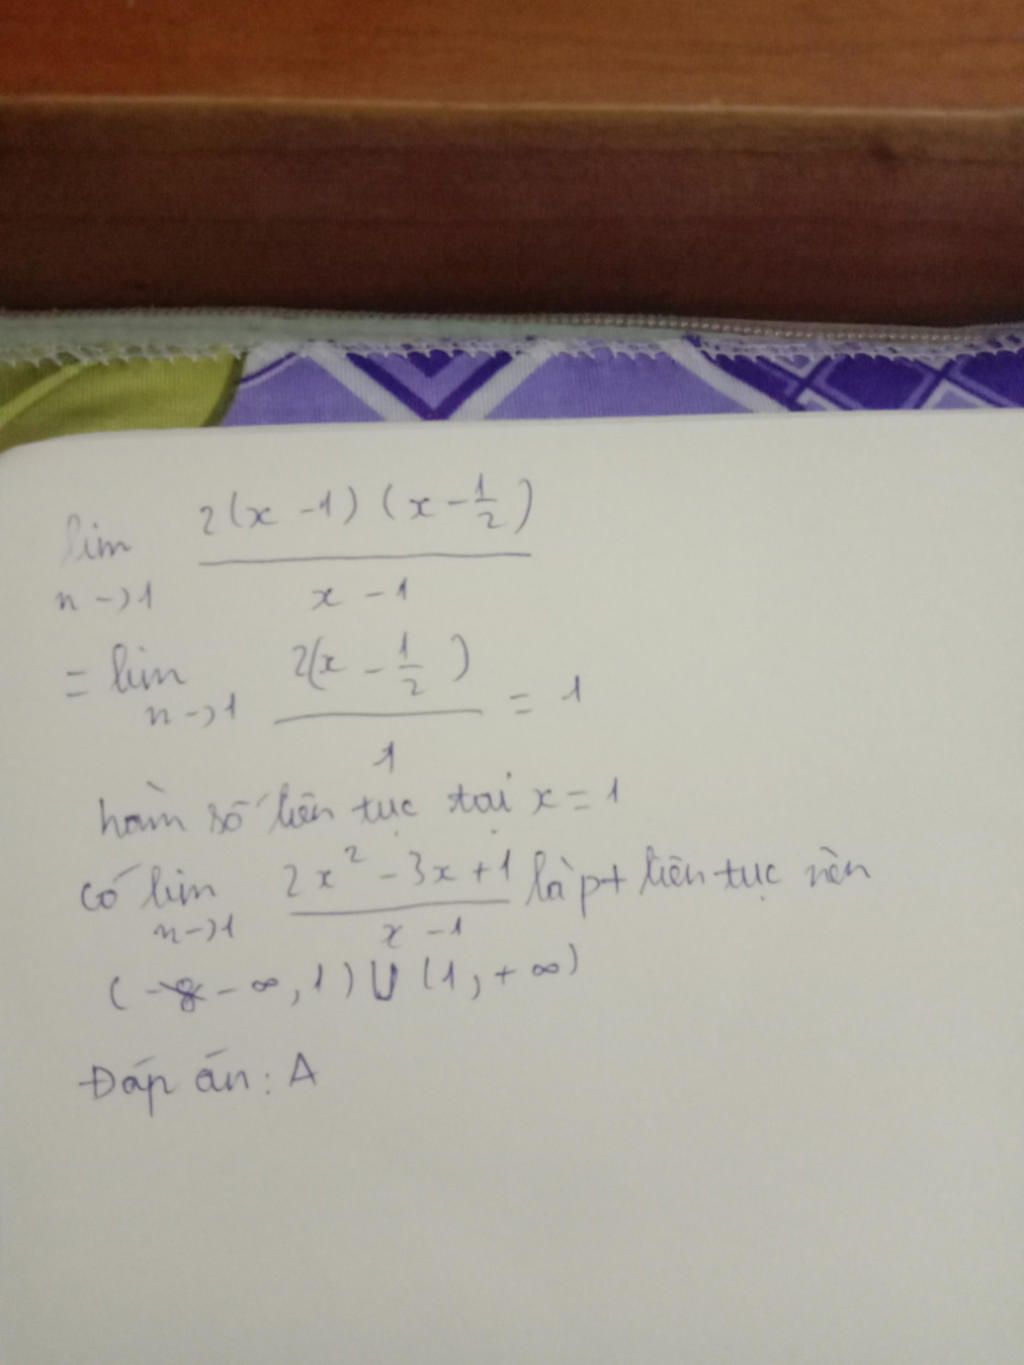 lim 2(x - 1) (x - 1/2) / x - 1
n -> 1
= lim 2(x - 1/2) / 1 = 1
n -> 1
hàm số liên tục tại x = 1
có lim 2x² - 3x + 1 / x - 1 là pt liên tục nên
n -> 1
(- ∞, 1) U (1, + ∞)
Đáp án: A